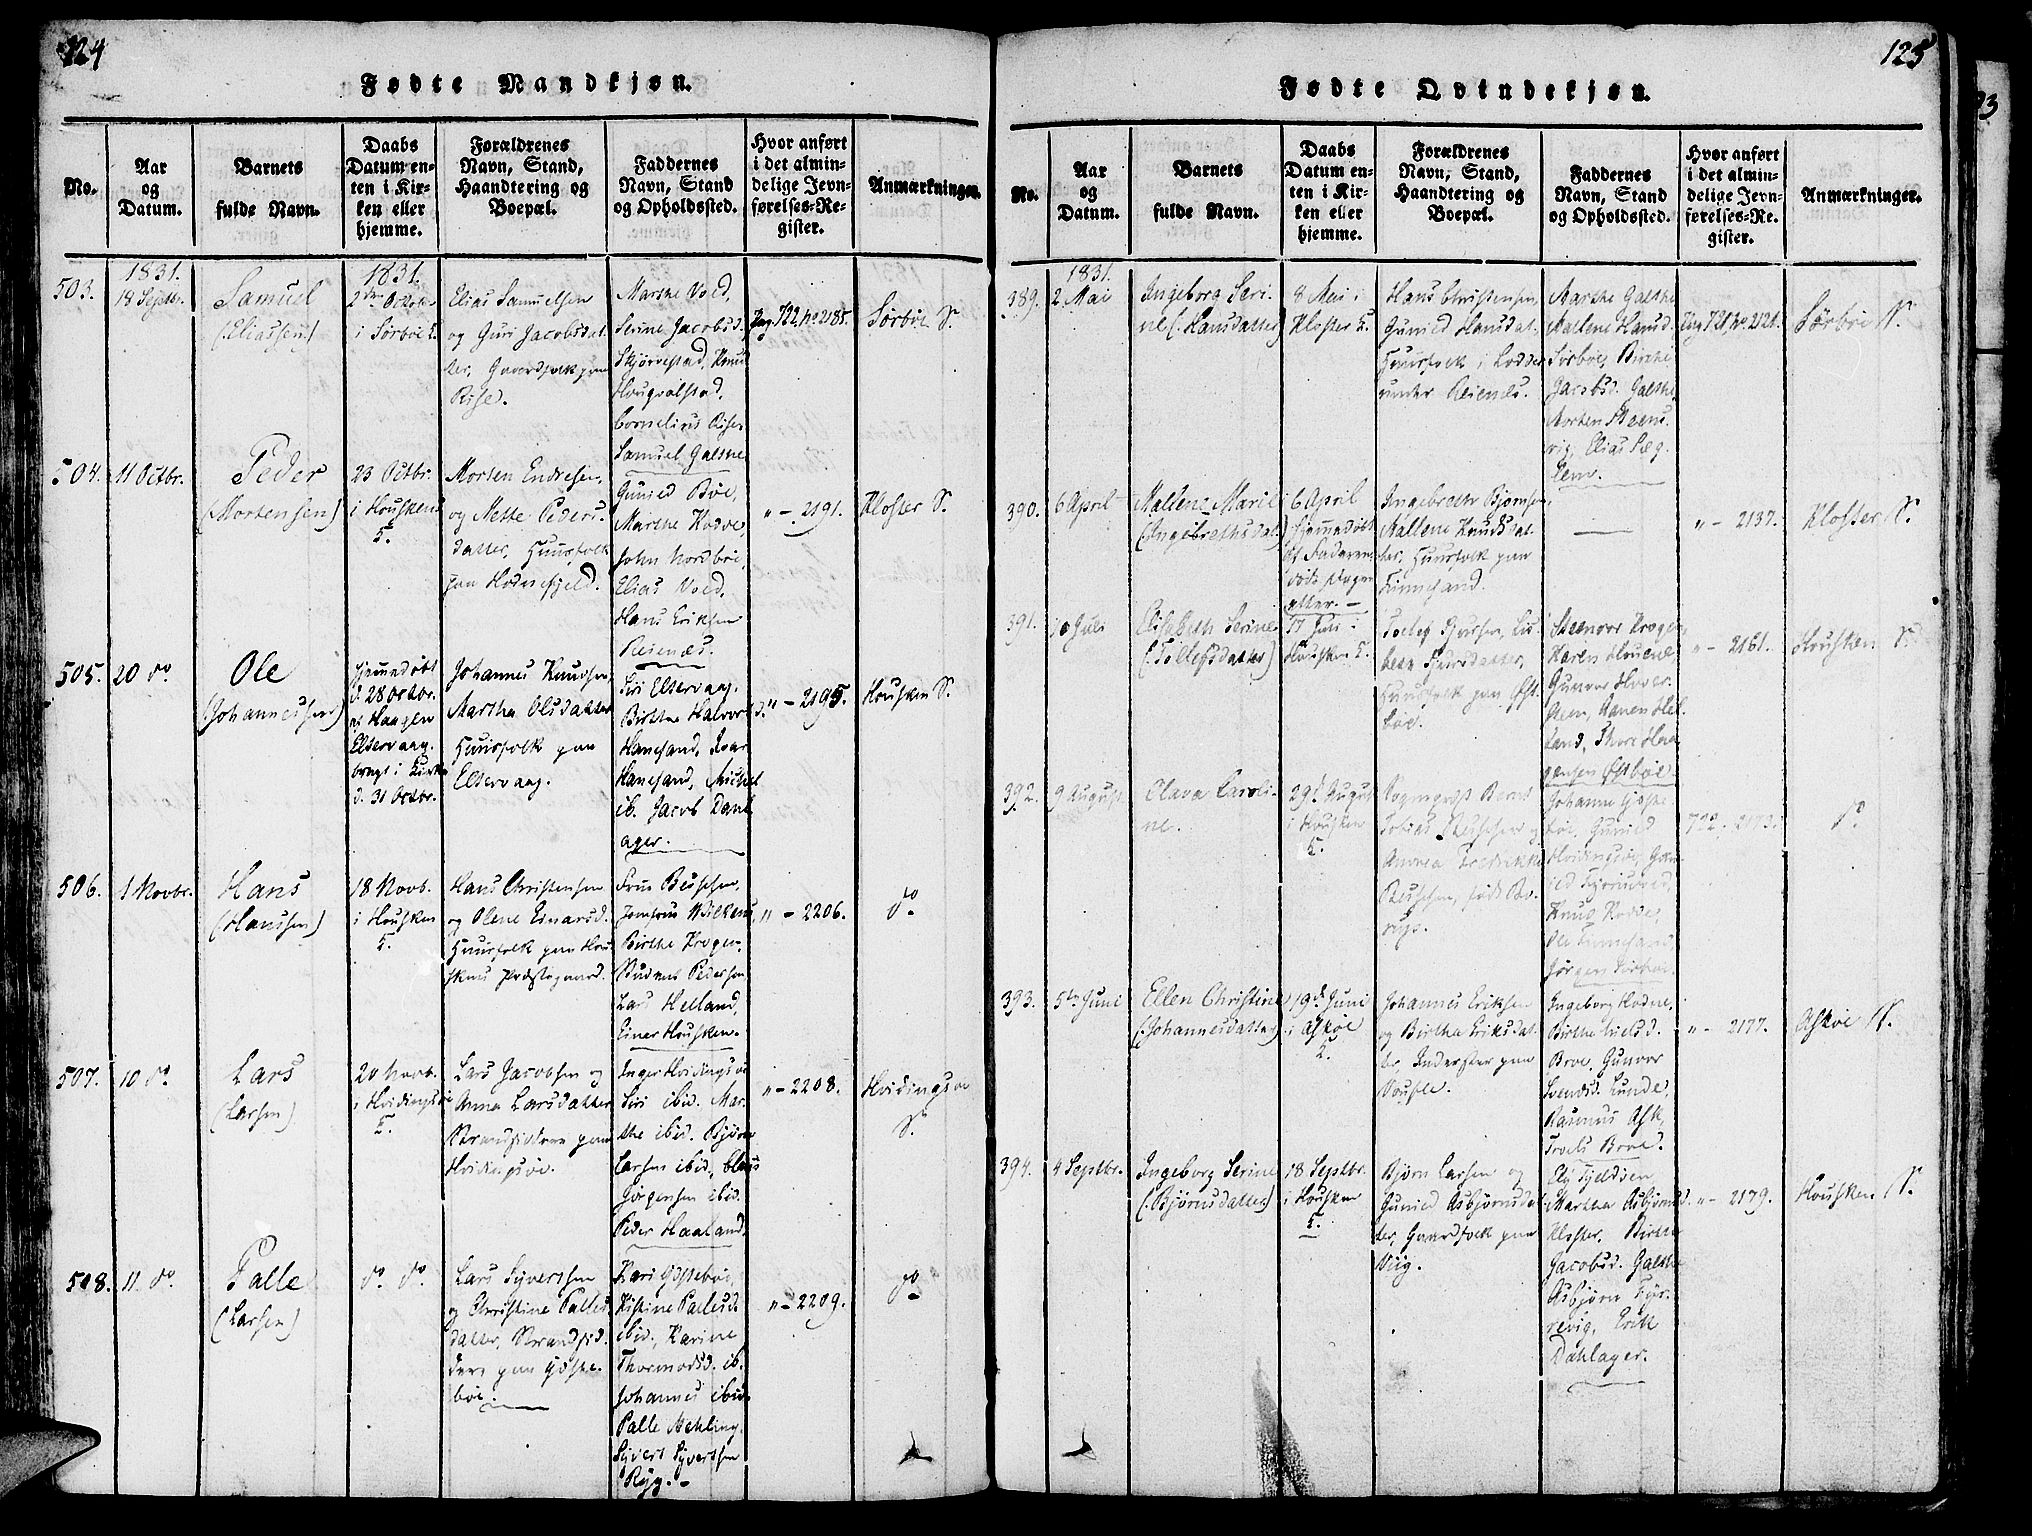 124
Fødte Mandkjøn.
No.
Aar
og
Datum.
Barnets
fulde Navn.
Daabs
Datum en-
ten i Kir-
ken eller
hjemme.
Forældrenes
Navn, Stand,
Haandtering og
Boepæl.
Faddernes
Navn, Stand
og Opholdssted.
Hvor anført
i det almin-
delige Jevn-
førelses-Re-
gister.
Anmærkninger.
503.
1831.
18 Septbr.
Samuel
(Eliassen)
1831.
2den October
i Sørbøe K.
Elias Samuelsen
og Guri Jacobsdat-
ter, Gaardfolk paa
Rise.
Marthe Vold,
Serine Jacobsd.
Skjørvestad, Knud
Hougvalstad,
Cornelius Rise,
Samuel Galthe
Pag. 722, No 2185.
Sørbøe S.
504.
11 Octbr.
Peder
(Mortensen)
23 Octbr.
i Housken
K.
Morten Endresen,
og Mette Peders-
datter, Huusfolk
paa Hodnefjeld.
Gunild Bøe,
Marthe Hodne,
John Nordbøe,
Elias Vold,
Hans Eriksen
Reienæs.
" - 2191.
Kloster S.
505.
20 do
Ole
(Johannessen)
Hjemmedøbt
d. 28 Octbr.
af Haagen
Eltervaag.
bragt i Kirke
d. 31 Octbr.
Johannes Knudsen,
Martha Olsdatter
Huusfolk paa
Eltervaag.
Siri Eltervaag.
Birthe Halvorsd.
Hanesand, Ivar
Hanesand, Michel
ib. Jacob Dahl-
ager.
" - 2195.
Housken S.
506.
1 Novbr.
Hans
(Hanssen)
18 Novb.
i Housken
K.
Hans Christensen
og Olene Einarsd.
Huusfolk paa Hou-
skens Præstegaard.
Frue Bussesen,
Jomfrue Wilkens,
Birthe Krogen,
Rasmus Pedersen,
Lars Helland,
Einer Housken.
" - 2206.
do
507.
10 do
Lars
(Larsen)
20 Novb.
i Hvidingsøe
K.
Lars Jacobsen og
Anna Larsdatter
Strandsiddere paa
Hvidingsøe.
Inger Hvidingsøe
Siri ibid. Mar-
the ibid. Bjørn
Larsen ibid, Claus
Jørgensen ibid.
Peder Haaland.
" - 2208.
Hvidingsøe
S.
508.
11 do
Palle
(Larsen)
do do
Lars Syvertsen
og Christine Palles-
datter, Strandsid-
dere paa Gjøste-
bøe.
Kari Gjøstebøe,
Kistine Pallesd.
ibid., Karine
Thormodsd. ib.
Johannes ibid.
Palle Mekling.
Syvert Syvertsen
Ryg. -
" - 2209.
do
125
Fødte Qvindekjøn.
No.
Aar
og
Datum.
Barnets
fulde Navn.
Daabs
Datum en-
ten i Kir-
ken eller
hjemme.
Forældrenes
Navn, Stand,
Haandtering og
Boepæl.
Faddernes
Navn, Stand
og Opholdssted.
Hvor anført
i det almin-
delige Jevn-
førelses-Re-
gister.
Anmærkninger.
389.
1831.
2 Mai
Ingeborg Seri-
ne (: Hansdatter)
8 Mai i
Kloster K.
Hans Christensen,
Gunild Hansdat.
Huusfolk i Lodden
under Reienæs.
Marthe Galthe
Mallene Hansd.
Sørbøe, Birthe
Jacobsd. Galthe,
Morten Steens-
vig, Elias Sæg-
lem.
Pag 721, No 2121.
Sørbøe S.
390.
6 April
Mallene Marie
(Ingebrethsdat.)
6 April
hjemmedøbt
af Faderen
døde Dagen
efter. -
Ingebreth Bjørnsen,
Mallene Knudsdat-
ter, Huusfolk paa
Finnesand.
" - 2137.
Kloster S.
391.
10 Juli
Elisabeth Serine
(: Tollefsdatter)
17 Juli i
Housken K.
Tollef Sjursen, Lis-
beth Sjursdatter,
Huusfolk paa Øst-
bøe.
Steenvor Krogen,
Karen Houene
Gunvor Hover-
steen, Maren Hel-
land, Thore Haa-
gensen Østbøe.
" - 2161.
Housken S.
392.
9 August
Olava Caroli-
ne.
29de August
i Housken
K.
Sogneprest Bernt
Tobias Bussesen og
Andrea Fredrikke
Bussesen, født Bo-
rup.
Johanne Gjøste-
bøe, Gunild
Hvidingsøe, Gun-
ild Fjørmestad,
Knud Hodne,
Ole Finnesand
Jørgen Sørbøe.
722. 2173.
do
393.
5te Juni
Ellen Christine
(: Johannesdatter)
19de Juni
i Askøe
K.
Johannes Eriksen
og Birtha Eriksdat-
ter, Inderster paa
Voule.
Ingeborg Hodne,
Birthe Nielsd.
Broe, Gunvor
Svendsd. Lunde,
Rasmus Ask,
Troels Broe.
" - 2177.
Askøe S.
394.
4 Septbr.
Ingeborg Serine
(: Bjørnsdatter)
18 Septbr.
i Housken
K.
Bjørn Larsen og
Gunild Asbjørnsdat-
ter, Gaardfolk paa
Viig.
Ely Fjeldsen
Martha Asbjørnsd.
Kloster. Birthe
Jacobsd. Galthe
Asbjørn Fjør-
revig, Erik
Dahlager.
" - 2179.
Housken S.